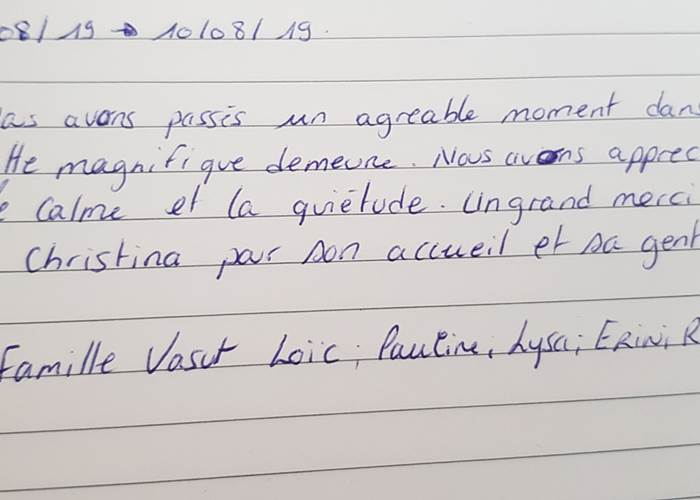 08/19 → 10/08/19.
avons passés un agreable moment dans
magnifique demeure. Nous avons apprec
Calme et la quiétude. Un grand merci
Christina par son accueil et sa gent
Famille Vasut Loïc, Pauline, Lysa, Erin, R